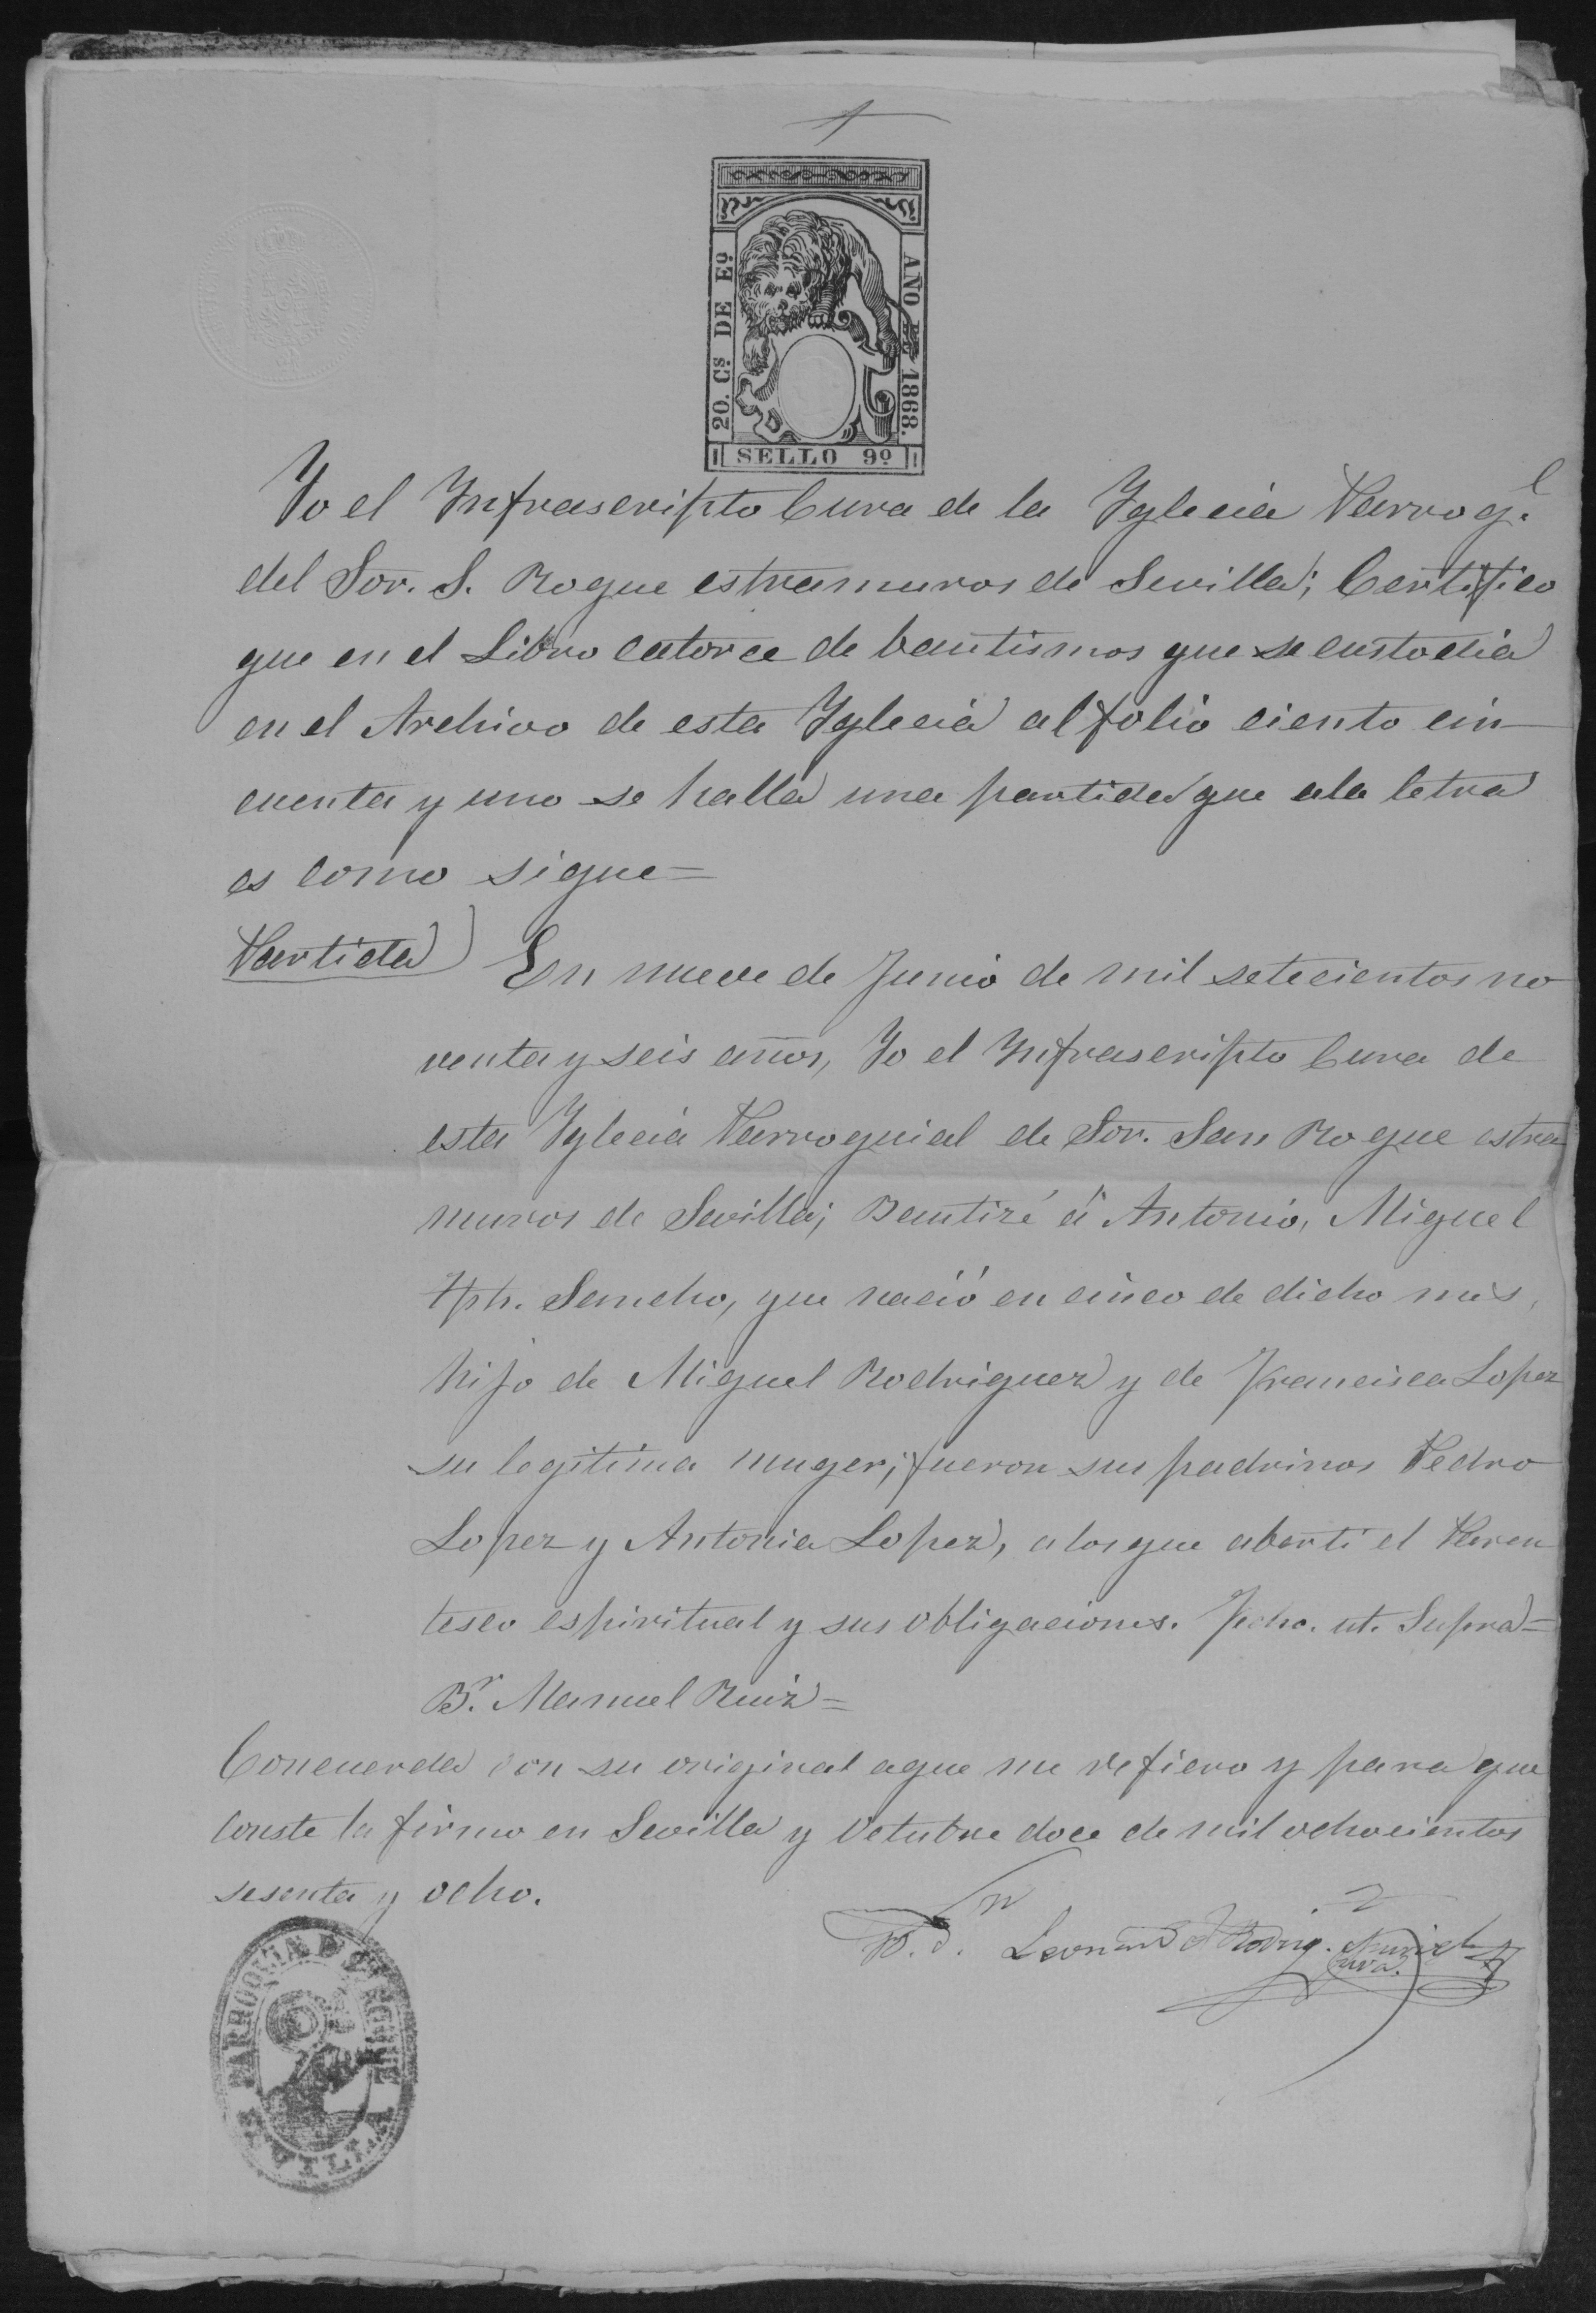 20. Cs. DE Eº
AÑO DE 1868.
SELLO 9º
Yo el Ynfrascripto Cura de la Yglecia Parroql.
del Sor. S. Roque estramuros de Sevilla; Certifico
que en el Libro catorce de bautismos que se custodia
en el Archivo de esta Yglecia al folio ciento cin
cuenta y uno se halla una partida que ala letra
es como sigue=
Partida) En nueve de Junio de mil setecientos no
venta y seis años, Yo el Ynfrascripto Cura de
esta Yglecia Parroquial de Sor. San Roque estra
muros de Sevilla; Bautizé á Antonio, Miguel
Jph. Sancho, que nació en cinco de dicho mes,
hijo de Miguel Rodriguez y de Francisca Lopez
su legitima muger; fueron sus padrinos Pedro
Lopez y Antonia Lopez, a los que aberti el Paren
tesco espiritual y sus obligaciones. Fcho. ut. Supra=
Br. Manuel Ruiz=
Concuerda con su original aque me refiero y para que
conste la firmo en Sevilla y Octubre doce de mil ochocientos
sesenta y ocho.
Leonardo Rodrig.
Cura.
PARROQUIA D S. ROQUE
SEVILLA